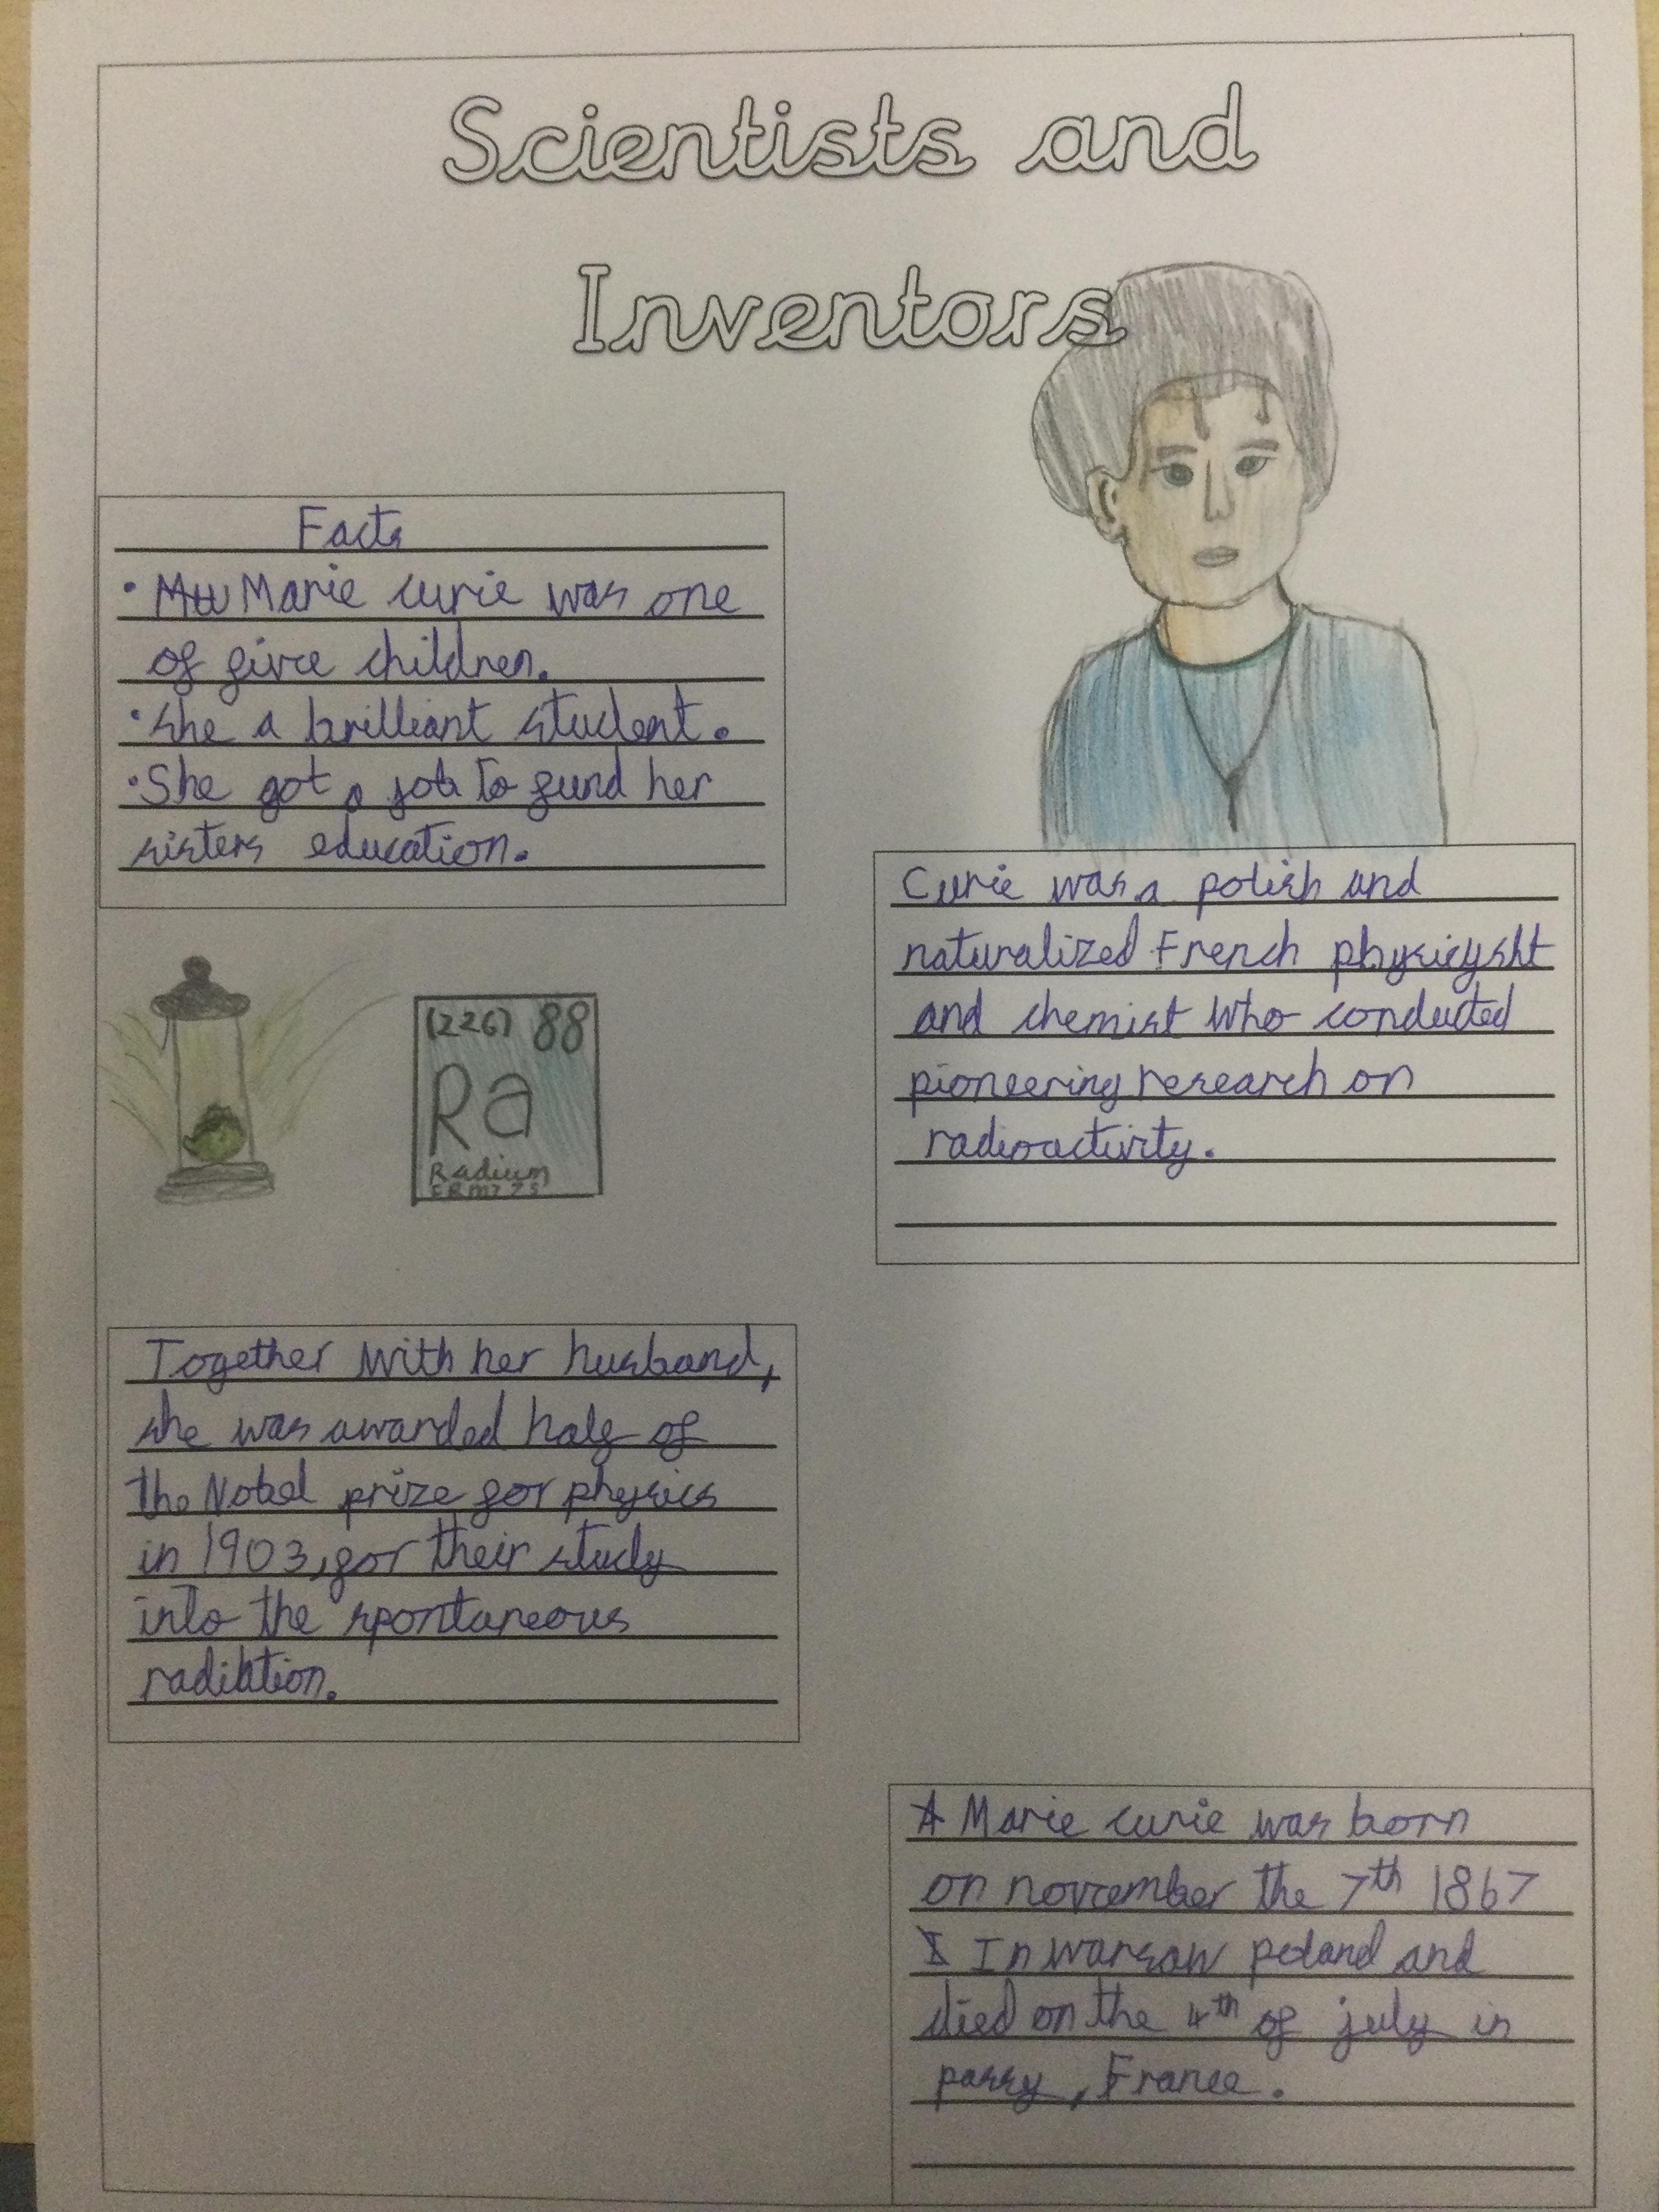 Scientists and
Inventors
Facts
• Marie curie was one
of five children.
• she a brilliant student.
• She got a job to fund her
sisters education.
Curie was a polish and
naturalized French physicysht
and chemist who conducted
pioneering research on
radioactivity.
(226) 88
Ra
Radium
Together with her husband,
she was awarded half of
the Nobel prize for physics
in 1903, for their study
into the spontaneous
radiation.
Marie curie was born
on november the 7th 1867
In warsaw poland and
died on the 4th of july in
passy, France.